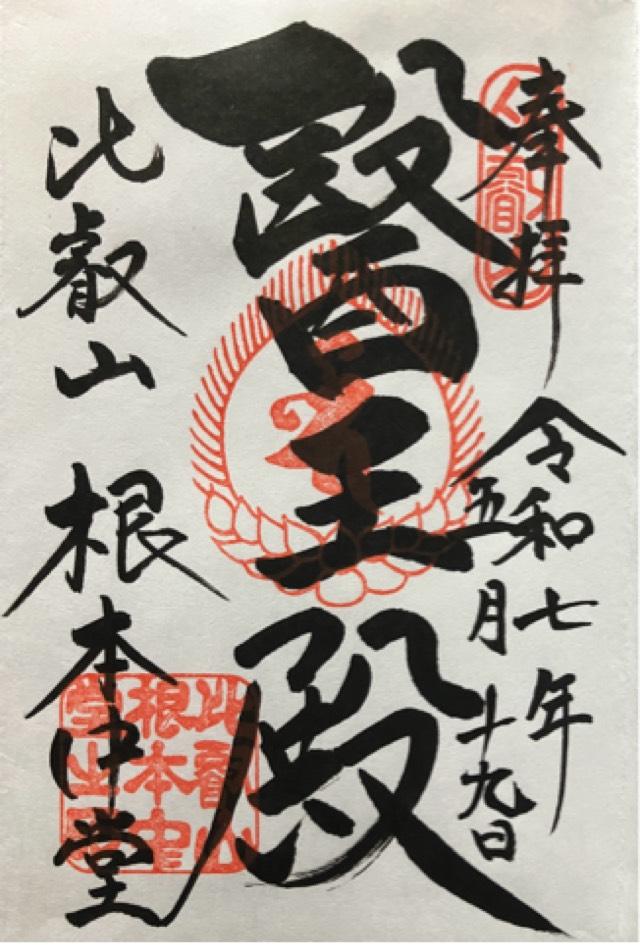 奉拝
令和七年
五月十九日
醫王殿
比叡山 根本中堂
比叡山
根本中
堂之印